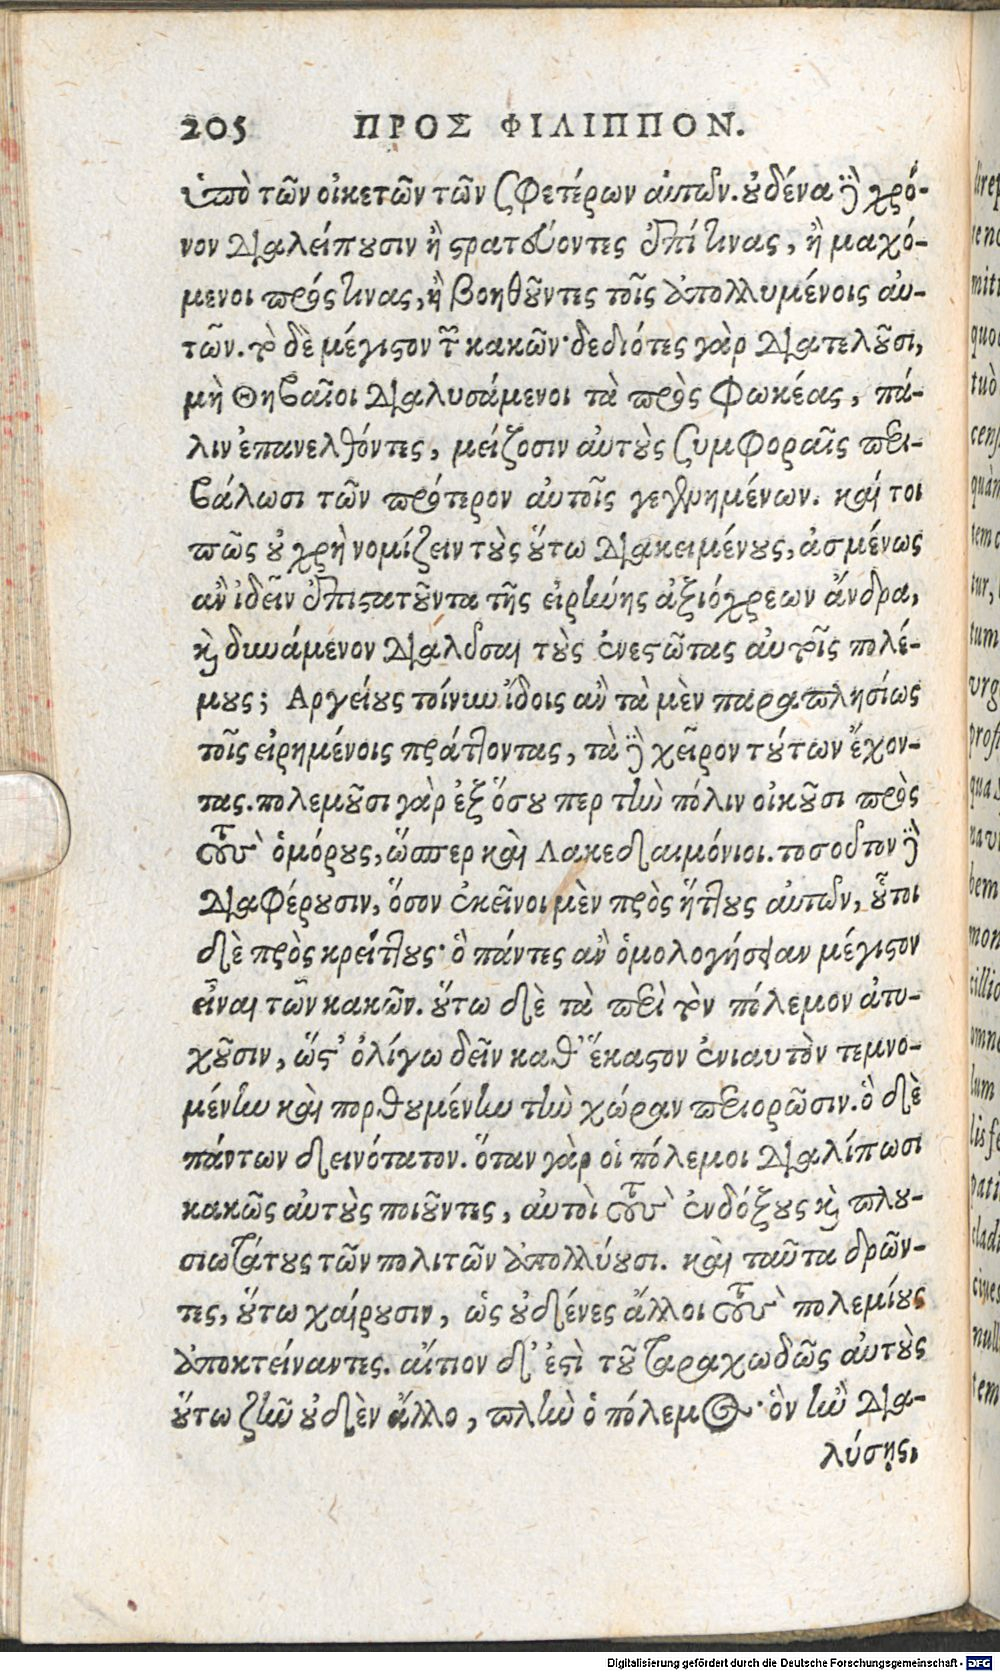 205 ΠΡΟΣ ΦΙΛΙΠΠΟΝ.
ὑπὸ τῶν οἰκετῶν τῶν σφετέρων αὐτῶν. οὐδένα δὲ χρό-
νον διαλείπουσιν ἢ στρατεύοντες ἐπί τινας, ἢ μαχό-
μενοι πρός τινας, ἢ βοηθοῦντες τοῖς ἀπολλυμένοις αὐ-
τῶν. τὸ δὲ μέγιστον τῶν κακῶν· δεδιότες γὰρ διατελοῦσι,
μὴ Θηβαῖοι διαλυσάμενοι τὰ πρὸς Φωκέας, πά-
λιν ἐπανελθόντες, μείζοσιν αὐτοὺς συμφοραῖς περι-
βάλωσι τῶν πρότερον αὐτοῖς γεγενημένων. καί τοι
πῶς οὐ χρὴ νομίζειν τοὺς οὕτω διακειμένους, ἀσμένως
ἂν ἰδεῖν ἐπιστατοῦντα τῆς εἰρήνης ἀξιόχρεων ἄνδρα,
καὶ δυνάμενον διαλῦσαι τοὺς ἐνεστῶτας αὐτοῖς πολέ-
μους; Ἀργείους τοίνυν ἴδοις ἂν τὰ μὲν παραπλησίως
τοῖς εἰρημένοις πράττοντας, τὰ δὲ χεῖρον τούτων ἔχον-
τας. πολεμοῦσι γὰρ ἐξ ὅσου περ τὴν πόλιν οἰκοῦσι πρὸς
τοὺς ὁμόρους, ὥσπερ καὶ Λακεδαιμόνιοι. τοσοῦτον δὲ
διαφέρουσιν, ὅσον ἐκεῖνοι μὲν πρὸς ἥττους αὐτῶν, οὗτοι
δὲ πρὸς κρείττους· ὃ πάντες ἂν ὁμολογήσειαν μέγιστον
εἶναι τῶν κακῶν. οὕτω δὲ τὰ περὶ τὸν πόλεμον ἀτυ-
χοῦσιν, ὥστ' ὀλίγω δεῖν καθ' ἕκαστον ἐνιαυτὸν τεμνο-
μένην καὶ πορθουμένην τὴν χώραν περιορῶσιν. ὃ δὲ
πάντων δεινότατον. ὅταν γὰρ οἱ πόλεμοι διαλίπωσι
κακῶς αὐτοὺς ποιοῦντες, αὐτοὶ τοὺς ἐνδόξους καὶ πλου-
σιωτάτους τῶν πολιτῶν ἀπολλύουσι. καὶ ταῦτα δρῶν-
τες, οὕτω χαίρουσιν, ὡς οὐδένες ἄλλοι τοὺς πολεμίους
ἀποκτείναντες. αἴτιον δ' ἐστὶ τοῦ ταραχωδῶς αὐτοὺς
οὕτω ζῆν οὐδὲν ἄλλο, πλὴν ὁ πόλεμος· ὃν ἢν δια-
λύσῃς,
Digitalisierung gefördert durch die Deutsche Forschungsgemeinschaft - DFG